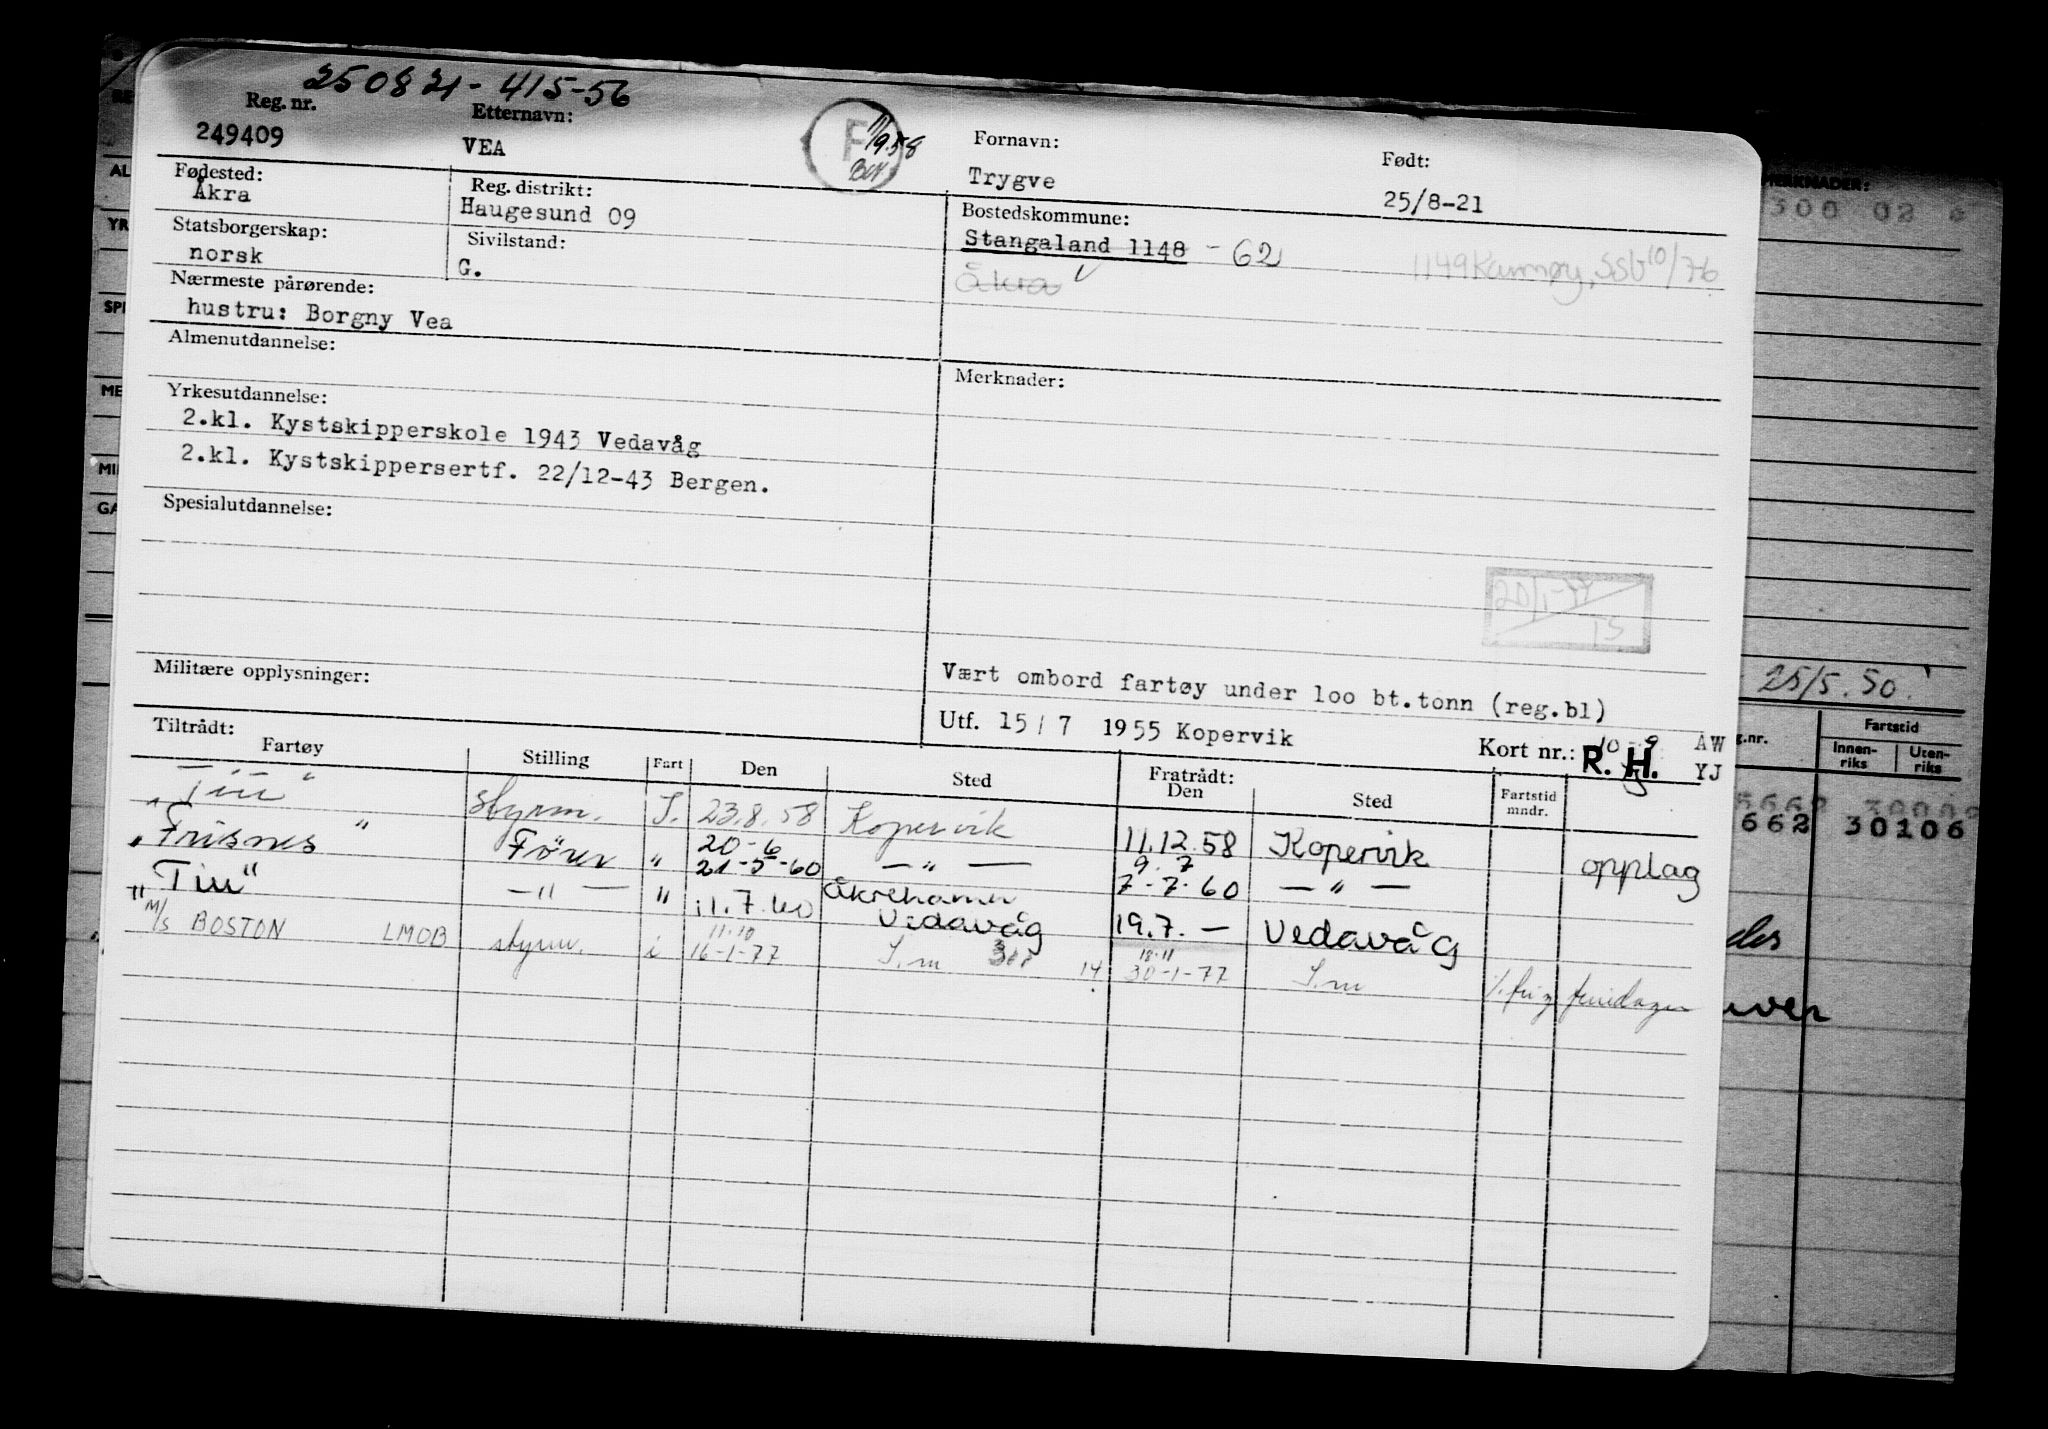 250821-415-56
Reg. nr. Etternavn: Fornavn: Født:
249409 VEA Trygve 25/8-21
F 11/9.58
Fødested: Reg. distrikt: Bostedskommune:
Åkra Haugesund 09 Stangaland 1148 - 62
Statsborgerskap: Sivilstand: Åkra 1149 Karmøy, SSV 10/76
norsk G.
Nærmeste pårørende:
hustru: Borgny Vea
Almenutdannelse: Merknader:
Yrkesutdannelse:
2.kl. Kystskipperskole 1943 Vedavåg
2.kl. Kystskippersertf. 22/12-43 Bergen.
Spesialutdannelse:
20/1-77
TS
Militære opplysninger: Vært ombord fartøy under 100 bt.tonn (reg.bl)
Utf. 15/7 1955 Kopervik Kort nr.: R. H. ÅW
YJ
Tiltrådt: Fratrådt:
Fartøy Stilling Fart Den Sted Den Sted Fartstid mndr.
"Tiu" styrm. I. 23.8.58 Kopervik 11.12.58 Kopervik opplag
"Frisnes" Fører " 20-6 9.7
21-5-60 — " — 7-7-60 — " —
"Tiu" — " — " 11.7.60 Åkrehamn
Vedavåg 19.7. — Vedavåg
M/S BOSTON LMOB styrm. i 11.10 18.11
16-1-77 I.m 14 30-1-77 I.m
MERKNADER:
300 02
25/5.50.
g.nr. Fartstid
Innenriks Utenriks
662 30106